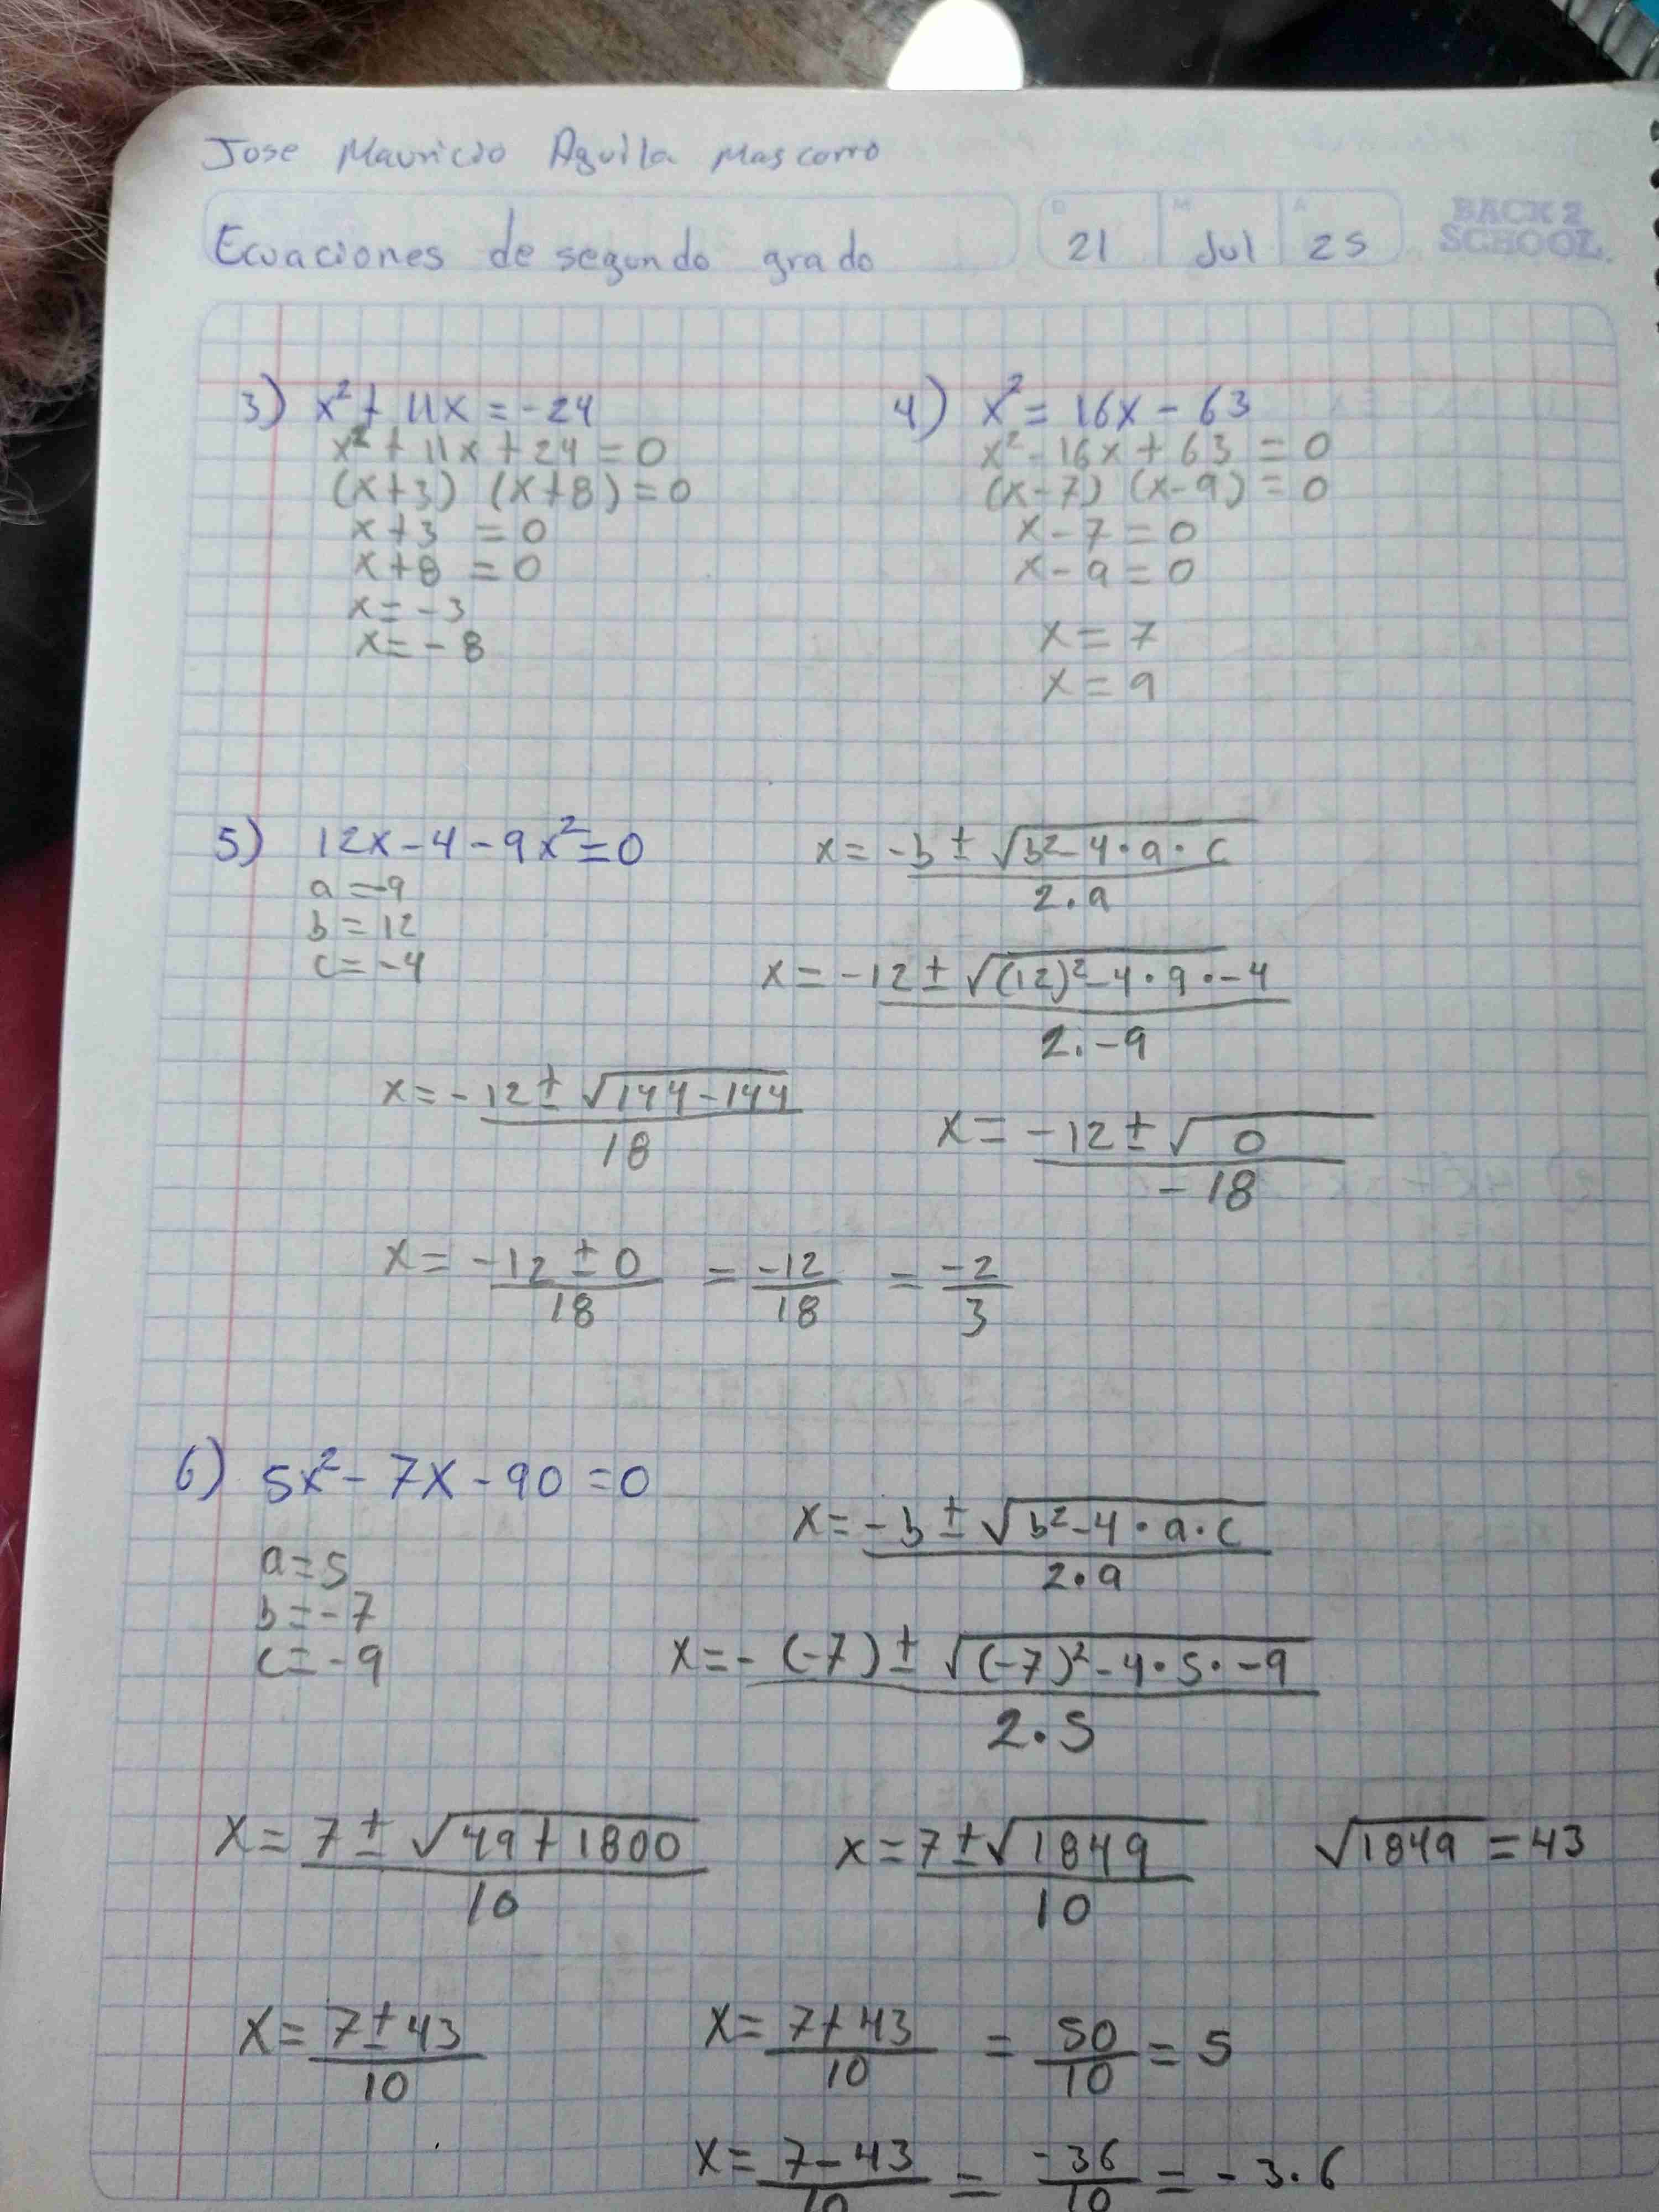 Jose Mauricio Aguila Mascorro
Ecuaciones de segundo grado
D 21 M Jul A 25
BACK 2
SCHOOL.
3) x² + 11x = -24
x² + 11x + 24 = 0
(x+3) (x+8) = 0
x+3 = 0
x+8 = 0
x = -3
x = -8
4) x² = 16x - 63
x² - 16x + 63 = 0
(x-7) (x-9) = 0
x - 7 = 0
x - 9 = 0
x = 7
x = 9
5) 12x - 4 - 9x² = 0
a = -9
b = 12
c = -4
x = -b ± √b² - 4 · a · c
2 . a
x = -12 ± √(12)² - 4 · 9 · -4
2 . -9
x = -12 ± √144 - 144
18
x = -12 ± √0
-18
x = -12 ± 0 = -12 = -2
18 18 3
6) 5x² - 7x - 90 = 0
a = 5
b = -7
c = -9
x = -b ± √b² - 4 · a · c
2 · a
x = -(-7) ± √(-7)² - 4 · 5 · -9
2 · 5
x = 7 ± √49 + 1800
10
x = 7 ± √1849
10
√1849 = 43
x = 7 ± 43
10
x = 7 + 43 = 50 = 5
10 10
x = 7 - 43 = -36 = -3.6
10 10